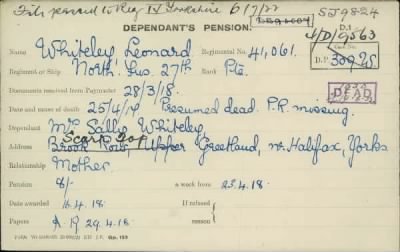 File passed to Reg IV Yorkshire 6/7/22
SJ9824
DEPENDANT'S PENSION.
D.1.
4/D/9563
Name Whiteley, Leonard Regimental No. 41,061.
Case No.
Regiment or Ship North. Fus. 27th Pte. D.P.
Documents received from Paymaster 28/3/18.
Date and cause of death 25/4/17 Presumed dead P.R. missing.
Dependant Mrs Sally Whiteley,
Scarr Top
Address Brook Row, Upper Greetland, nr. Halifax, Yorks
Relationship Mother
Pension 8/- a week from 23.4.18.
Date awarded 16.4.18. If refused
reason
Papers A.R 29.4.18.
Gp. 133